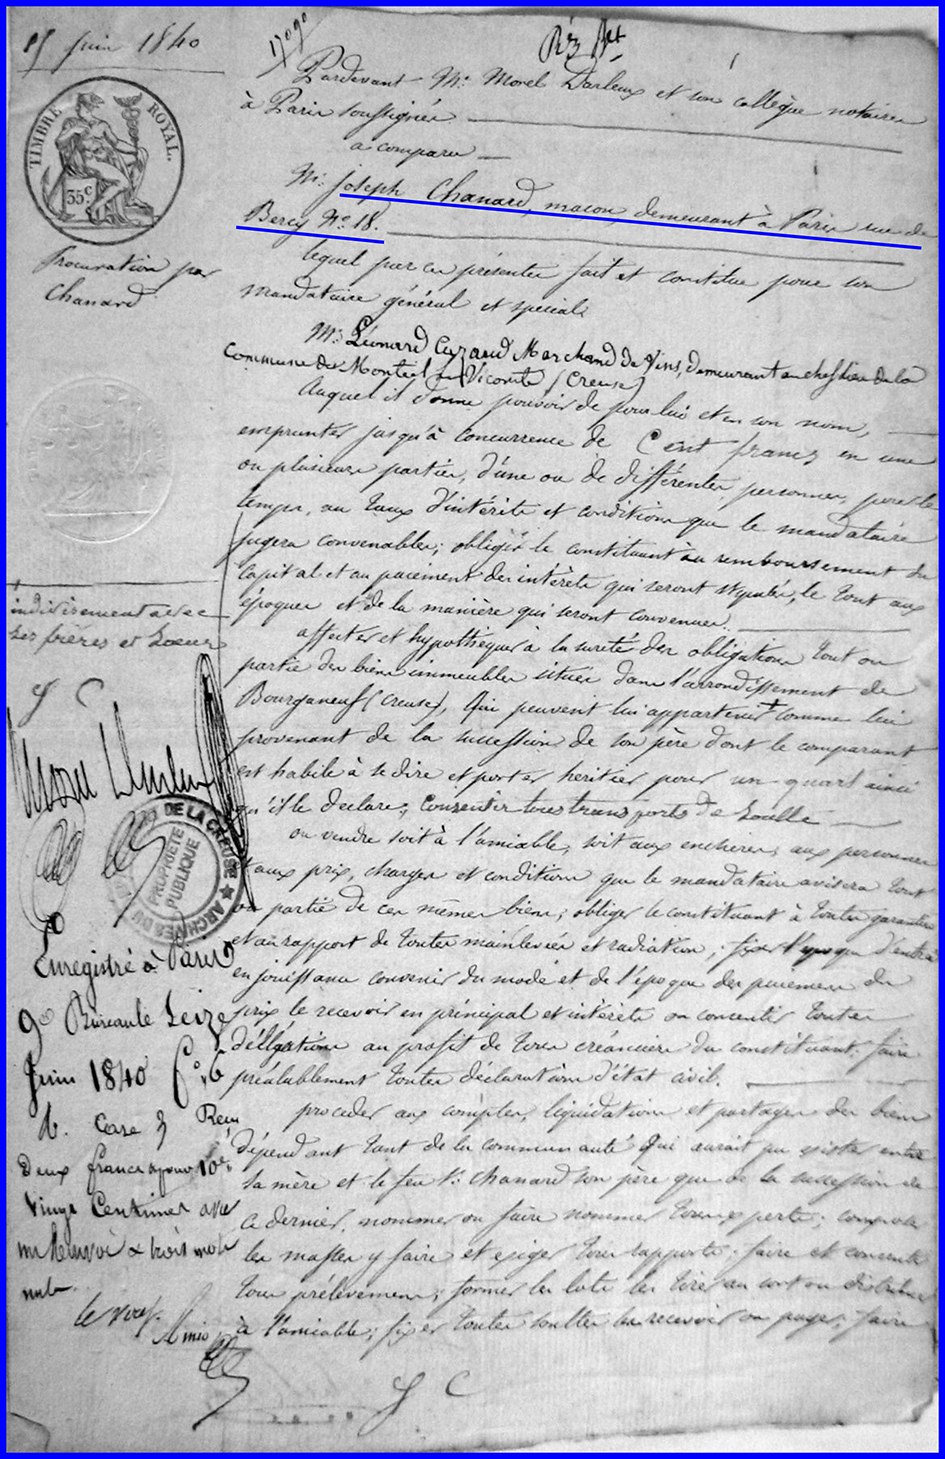 15 Juin 1840
TIMBRE ROYAL.
35c
Procuration par
Chanard
Pardevant Me. Morel Darleux et son collègue notaires
à Paris soussignés
a comparu
Mr. Joseph Chanard, maçon, demeurant à Paris rue de
Bercy No. 18.
lequel par ces présentes fait et constitue pour son
mandataire général et spécial
Mr. Léonard Cuzaud Marchand de Vins, demeurant au chef lieu de la
Commune de Monteil au Vicomte (Creuse)
Auquel il donne pouvoir de pour lui et en son nom,
emprunter jusqu'à concurrence de Cent francs en une
ou plusieurs parties, d'une ou de différentes personnes, pour le
temps, au taux d'intérêts et conditions que le mandataire
jugera convenables; obliger le constituant au remboursement du
capital et au paiement des intérêts qui seront stipulés, le tout aux
époques et de la manière qui seront convenues.
affecter et hypothéquer à la sureté des obligations tout ou
partie des biens immeubles situés dans l'arrondissement de
Bourganeuf (Creuse), qui peuvent lui appartenir + comme lui
provenant de la succession de son père dont le comparant
est habile à se dire et porter héritier pour un quart ainsi
qu'il le déclare; consentir tous transports de soulte
ou vendre soit à l'amiable, soit aux enchères, aux personnes
et aux prix, charges et conditions que le mandataire avisera tout
ou partie de ces mêmes biens; obliger le constituant à toutes garanties
et au rapport de toutes mainlevées et radiations; fixer l'époque d'entrée
en jouissance convenir du mode et de l'époque des paiemens du
prix le recevoir en principal et intérêts ou consentir toutes
délégations au profit de tous créanciers du constituant. faire
préalablement toutes déclarations d'état civil.
procéder aux comptes, liquidations et partages des biens
dépendant tant de la communauté qui aurait pu exister entre
sa mère et le feu Sr. Chanard son père que de la succession de
ce dernier, nommer ou faire nommer tous experts; composer
les masses y faire et exiger tous rapports; faire et consentir
tous prélèvemens; former les lots les tirer au sort ou distribuer
à l'amiable; fixer toutes soultes les recevoir ou payer, faire
J C
indivisément avec
ses frères et soeurs
J C
Morel Darleux
ARCHIVES DE LA CREUSE
PROPRIETE PUBLIQUE
Enregistré à Paris
9e Bureau le Seize
Juin 1840 fo. 76
Case 3 Reçu
Deux francs pour 10e
Vingt Centimes avec
un Renvoi & trois mots
nuls.